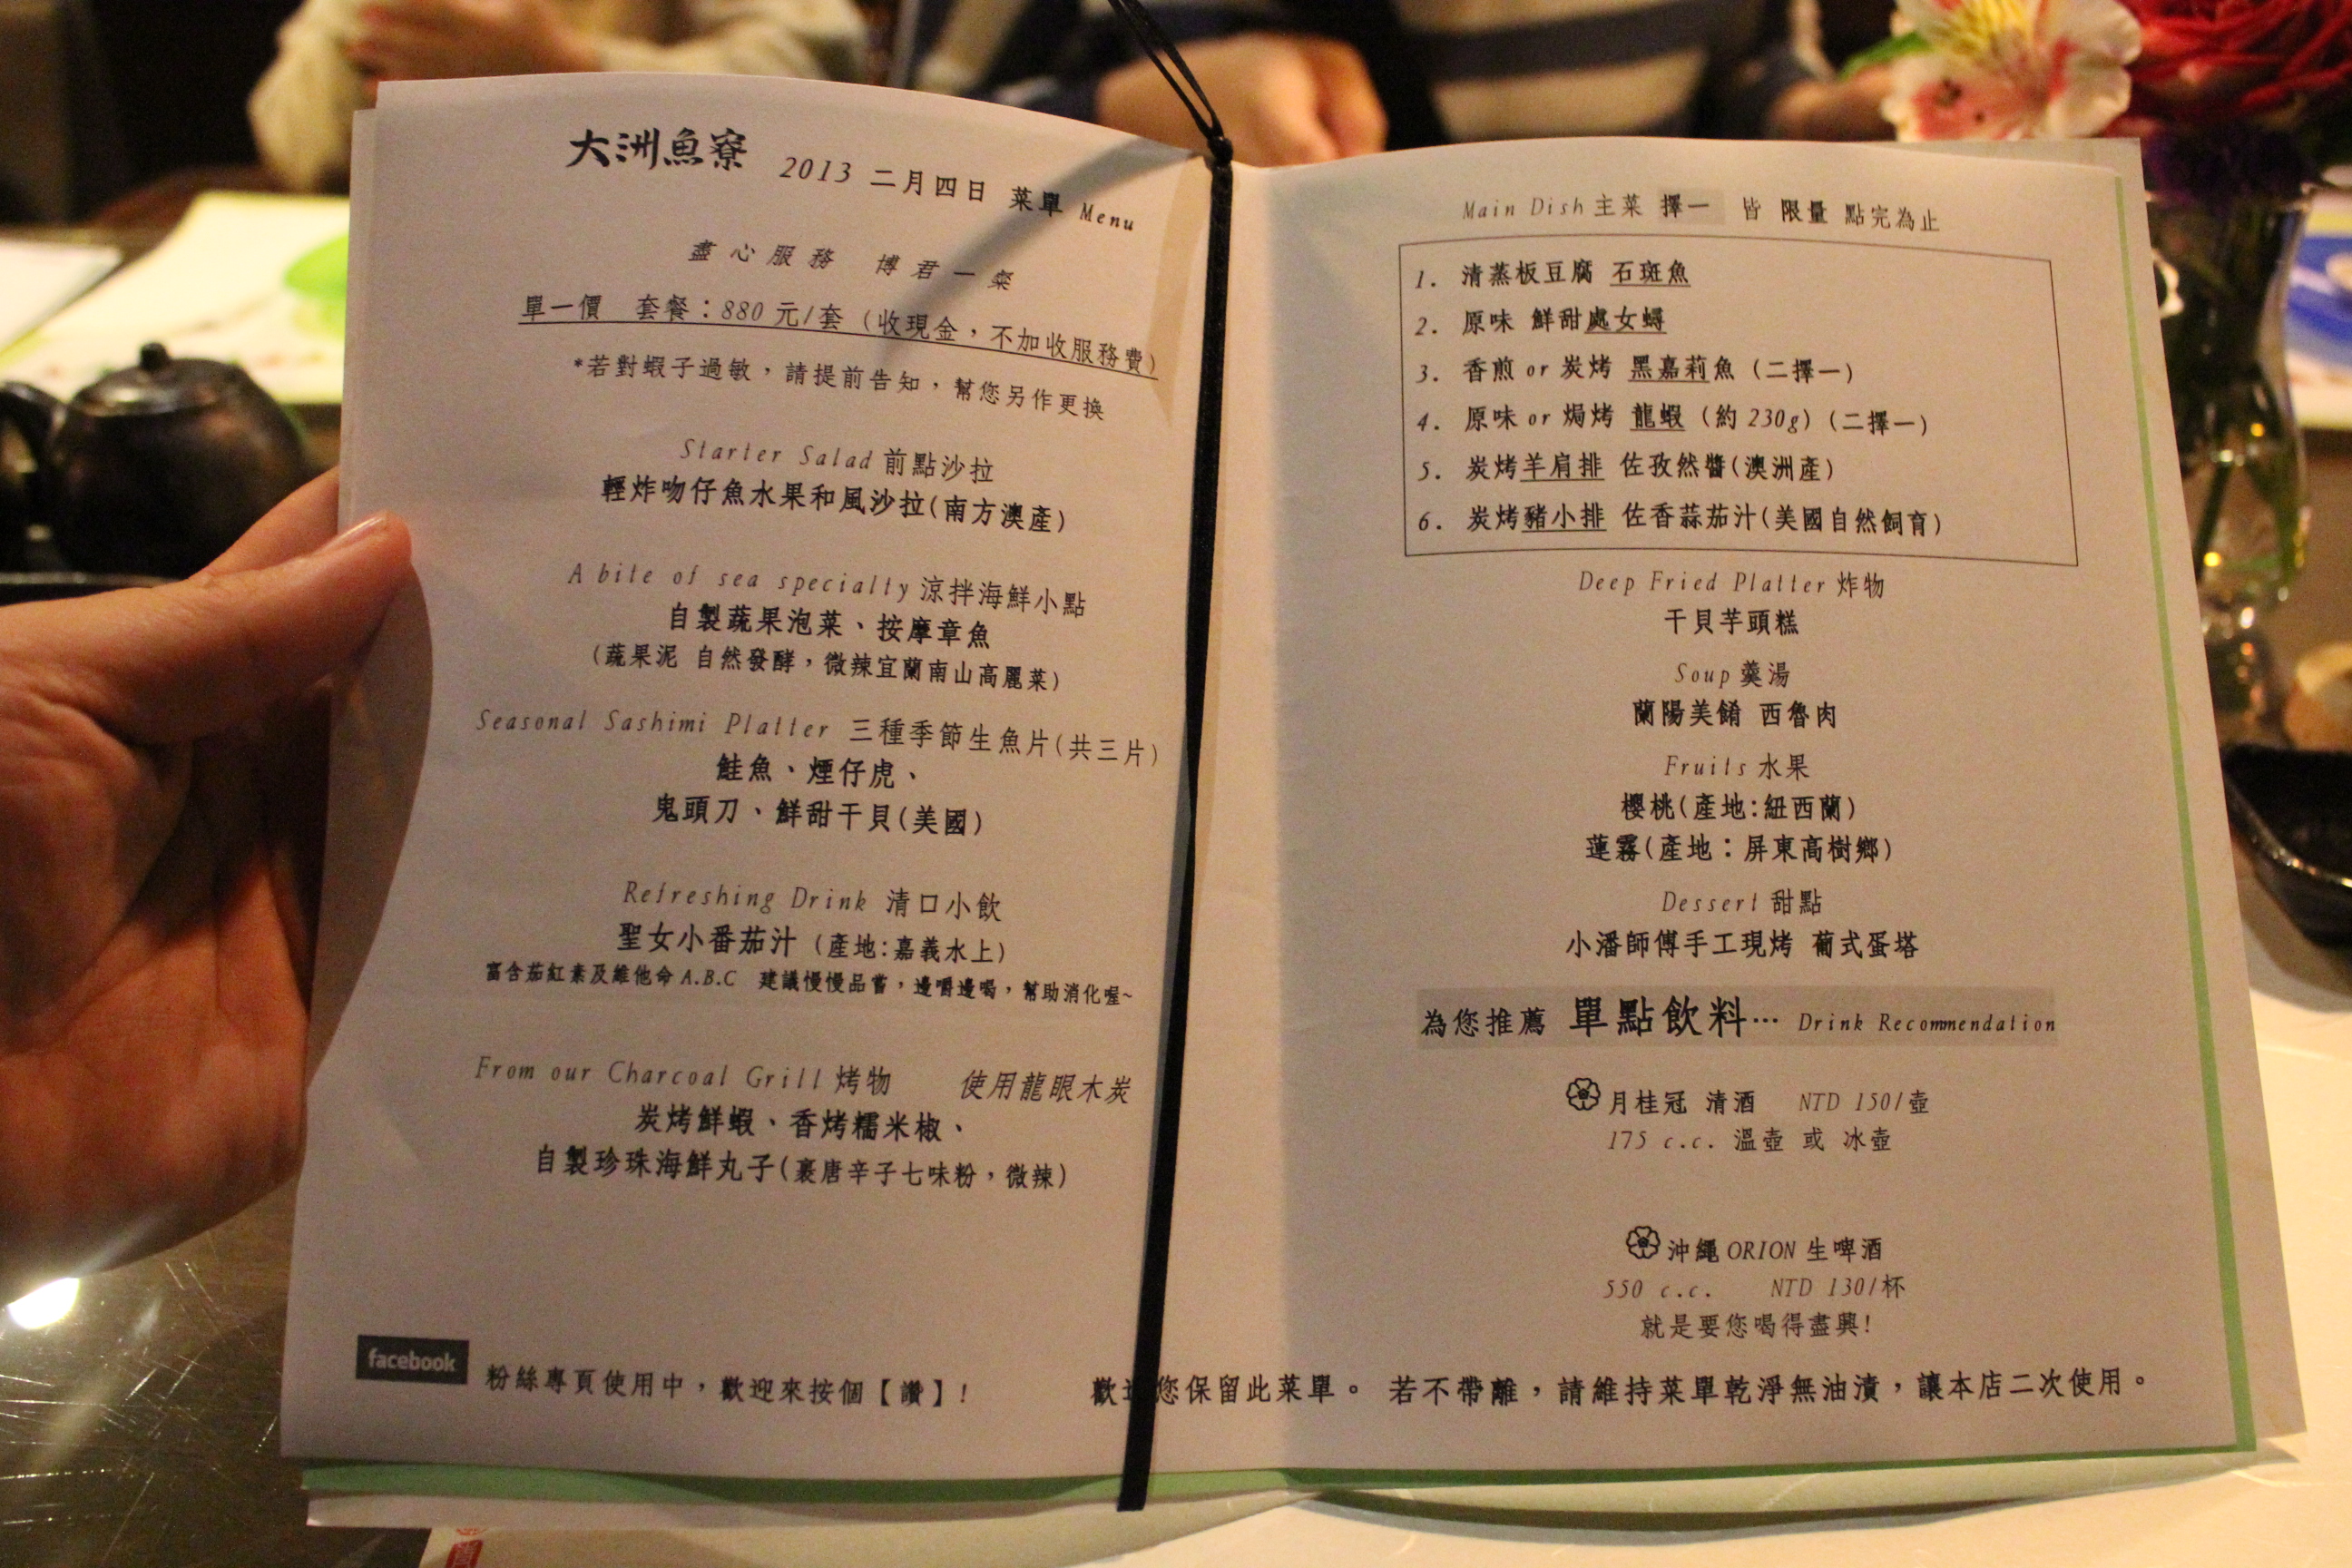 大洲魚寮 2013 二月四日 菜單 Menu
盡心服務 博君一粲
單一價 套餐：880 元/套 (收現金，不加收服務費)
*若對蝦子過敏，請提前告知，幫您另作更換
Starter Salad 前點沙拉
輕炸吻仔魚水果和風沙拉(南方澳產)
A bite of sea specialty 涼拌海鮮小點
自製蔬果泡菜、按摩章魚
(蔬果泥 自然發酵，微辣宜蘭南山高麗菜)
Seasonal Sashimi Platter 三種季節生魚片(共三片)
鮭魚、煙仔虎、
鬼頭刀、鮮甜干貝(美國)
Refreshing Drink 清口小飲
聖女小番茄汁 (產地:嘉義水上)
富含茄紅素及維他命A.B.C 建議慢慢品嘗，邊嚼邊喝，幫助消化喔~
From our Charcoal Grill 烤物 使用龍眼木炭
炭烤鮮蝦、香烤糯米椒、
自製珍珠海鮮丸子(裹唐辛子七味粉，微辣)
facebook 粉絲專頁使用中，歡迎來按個【讚】!
Main Dish 主菜 擇一 皆 限量 點完為止
1. 清蒸板豆腐 石斑魚
2. 原味 鮮甜處女蟳
3. 香煎 or 炭烤 黑嘉莉魚 (二擇一)
4. 原味 or 焗烤 龍蝦 (約 230g) (二擇一)
5. 炭烤羊肩排 佐孜然醬(澳洲產)
6. 炭烤豬小排 佐香蒜茄汁(美國自然飼育)
Deep Fried Platter 炸物
干貝芋頭糕
Soup 羹湯
蘭陽美餚 西魯肉
Fruits 水果
櫻桃(產地:紐西蘭)
蓮霧(產地：屏東高樹鄉)
Dessert 甜點
小潘師傅手工現烤 葡式蛋塔
為您推薦 單點飲料… Drink Recommendation
月桂冠 清酒 NTD 150/壺
175 c.c. 溫壺 或 冰壺
沖繩 ORION 生啤酒
550 c.c. NTD 130/杯
就是要您喝得盡興!
歡迎您保留此菜單。 若不帶離，請維持菜單乾淨無油漬，讓本店二次使用。